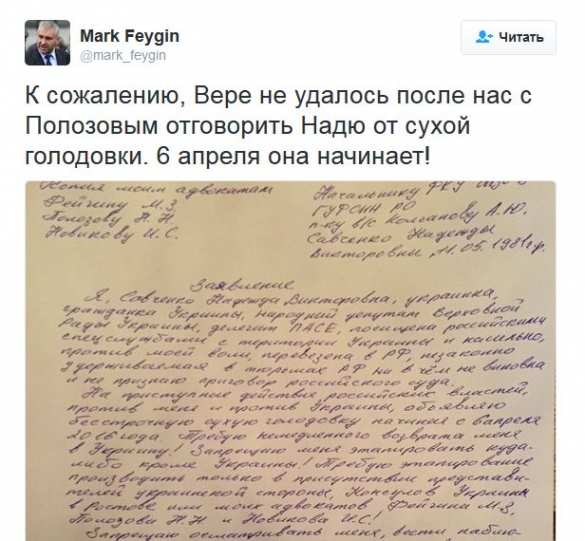 Mark Feygin
@mark_feygin
Читать
К сожалению, Вере не удалось после нас с
Полозовым отговорить Надю от сухой
голодовки. 6 апреля она начинает!
Копия моим адвокатам
Фейгину М.З.
Полозову Н.Н
Новикову И.С.
Начальнику ФКУ
ГУФСИН РО
п-ку в/с Колганову А.Ю.
Савченко Надежды
Викторовны, 11.05.1981г.р.
Заявление
Я, Савченко Надежда Викторовна, украинка,
гражданка Украины, Народный депутат Верховной
Рады Украины, делегат ПАСЕ, похищена российскими
спецслужбами с территории Украины и насильно,
против моей воли, перевезена в РФ, незаконно
удерживаемая в тюрьмах РФ ни в чём не виновна
и не признаю приговор российского суда.
На преступные действия российских властей,
против меня и против Украины, объявляю
бессрочную сухую голодовку начиная с 6 апреля
2016 года. Требую немедленного возврата меня
в Украину! Запрещаю меня этапировать куда-
либо кроме Украины! Требую этапирование
производить только в присутствии представи-
телей украинской стороны, Консулов Украины
в Ростове или моих адвокатов Фейгина М.З,
Полозова Н.Н и Новикова И.С!
Запрещаю осматривать меня, вести наблю-